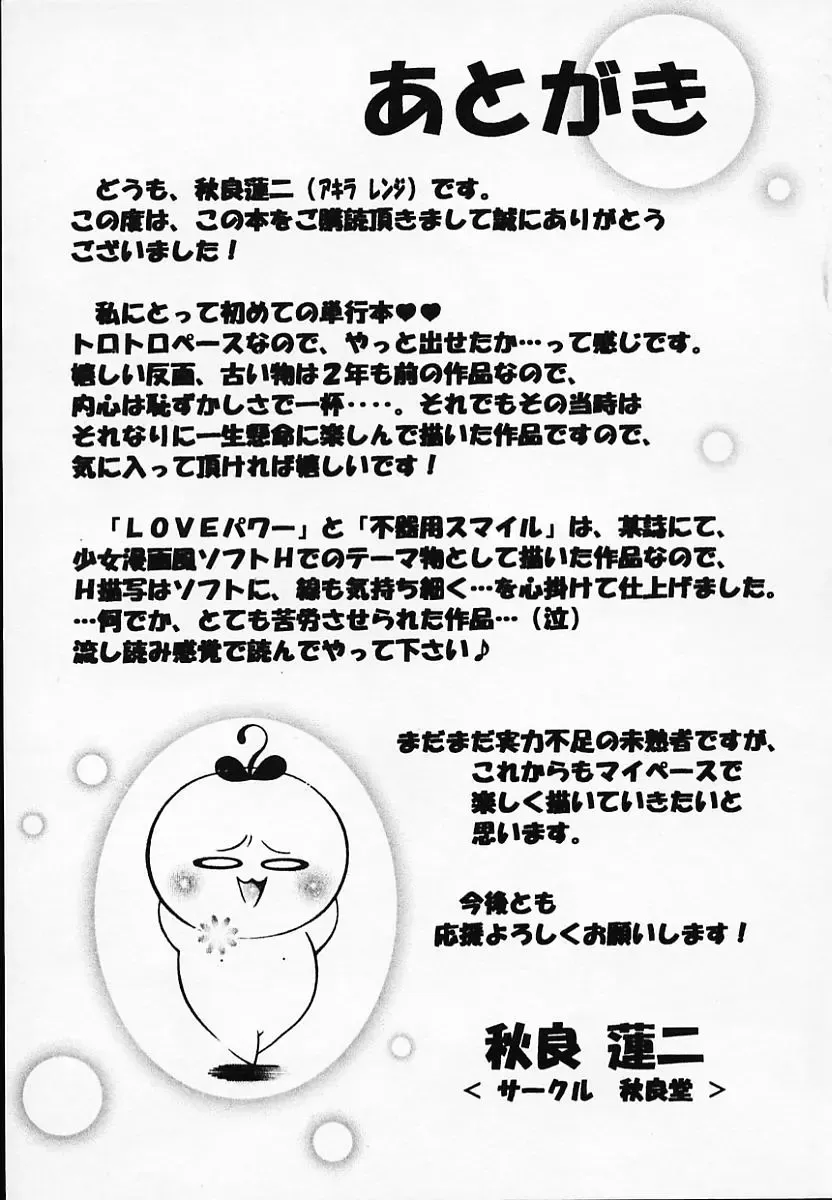 あとがき
どうも、秋良蓮二（アキラ レンジ）です。
この度は、この本をご購読頂きまして誠にありがとう
ございました！
私にとって初めての単行本♥♥
トロトロペースなので、やっと出せたか…って感じです。
嬉しい反面、古い物は２年も前の作品なので、
内心は恥ずかしさで一杯‥‥。それでもその当時は
それなりに一生懸命に楽しんで描いた作品ですので、
気に入って頂ければ嬉しいです！
「ＬＯＶＥパワー」と「不器用スマイル」は、某誌にて、
少女漫画風ソフトＨでのテーマ物として描いた作品なので、
Ｈ描写はソフトに、線も気持ち細く…を心掛けて仕上げました。
…何でか、とても苦労させられた作品…（泣）
流し読み感覚で読んでやって下さい♪
まだまだ実力不足の未熟者ですが、
これからもマイペースで
楽しく描いていきたいと
思います。
今後とも
応援よろしくお願いします！
秋良 蓮二
＜ サークル 秋良堂 ＞